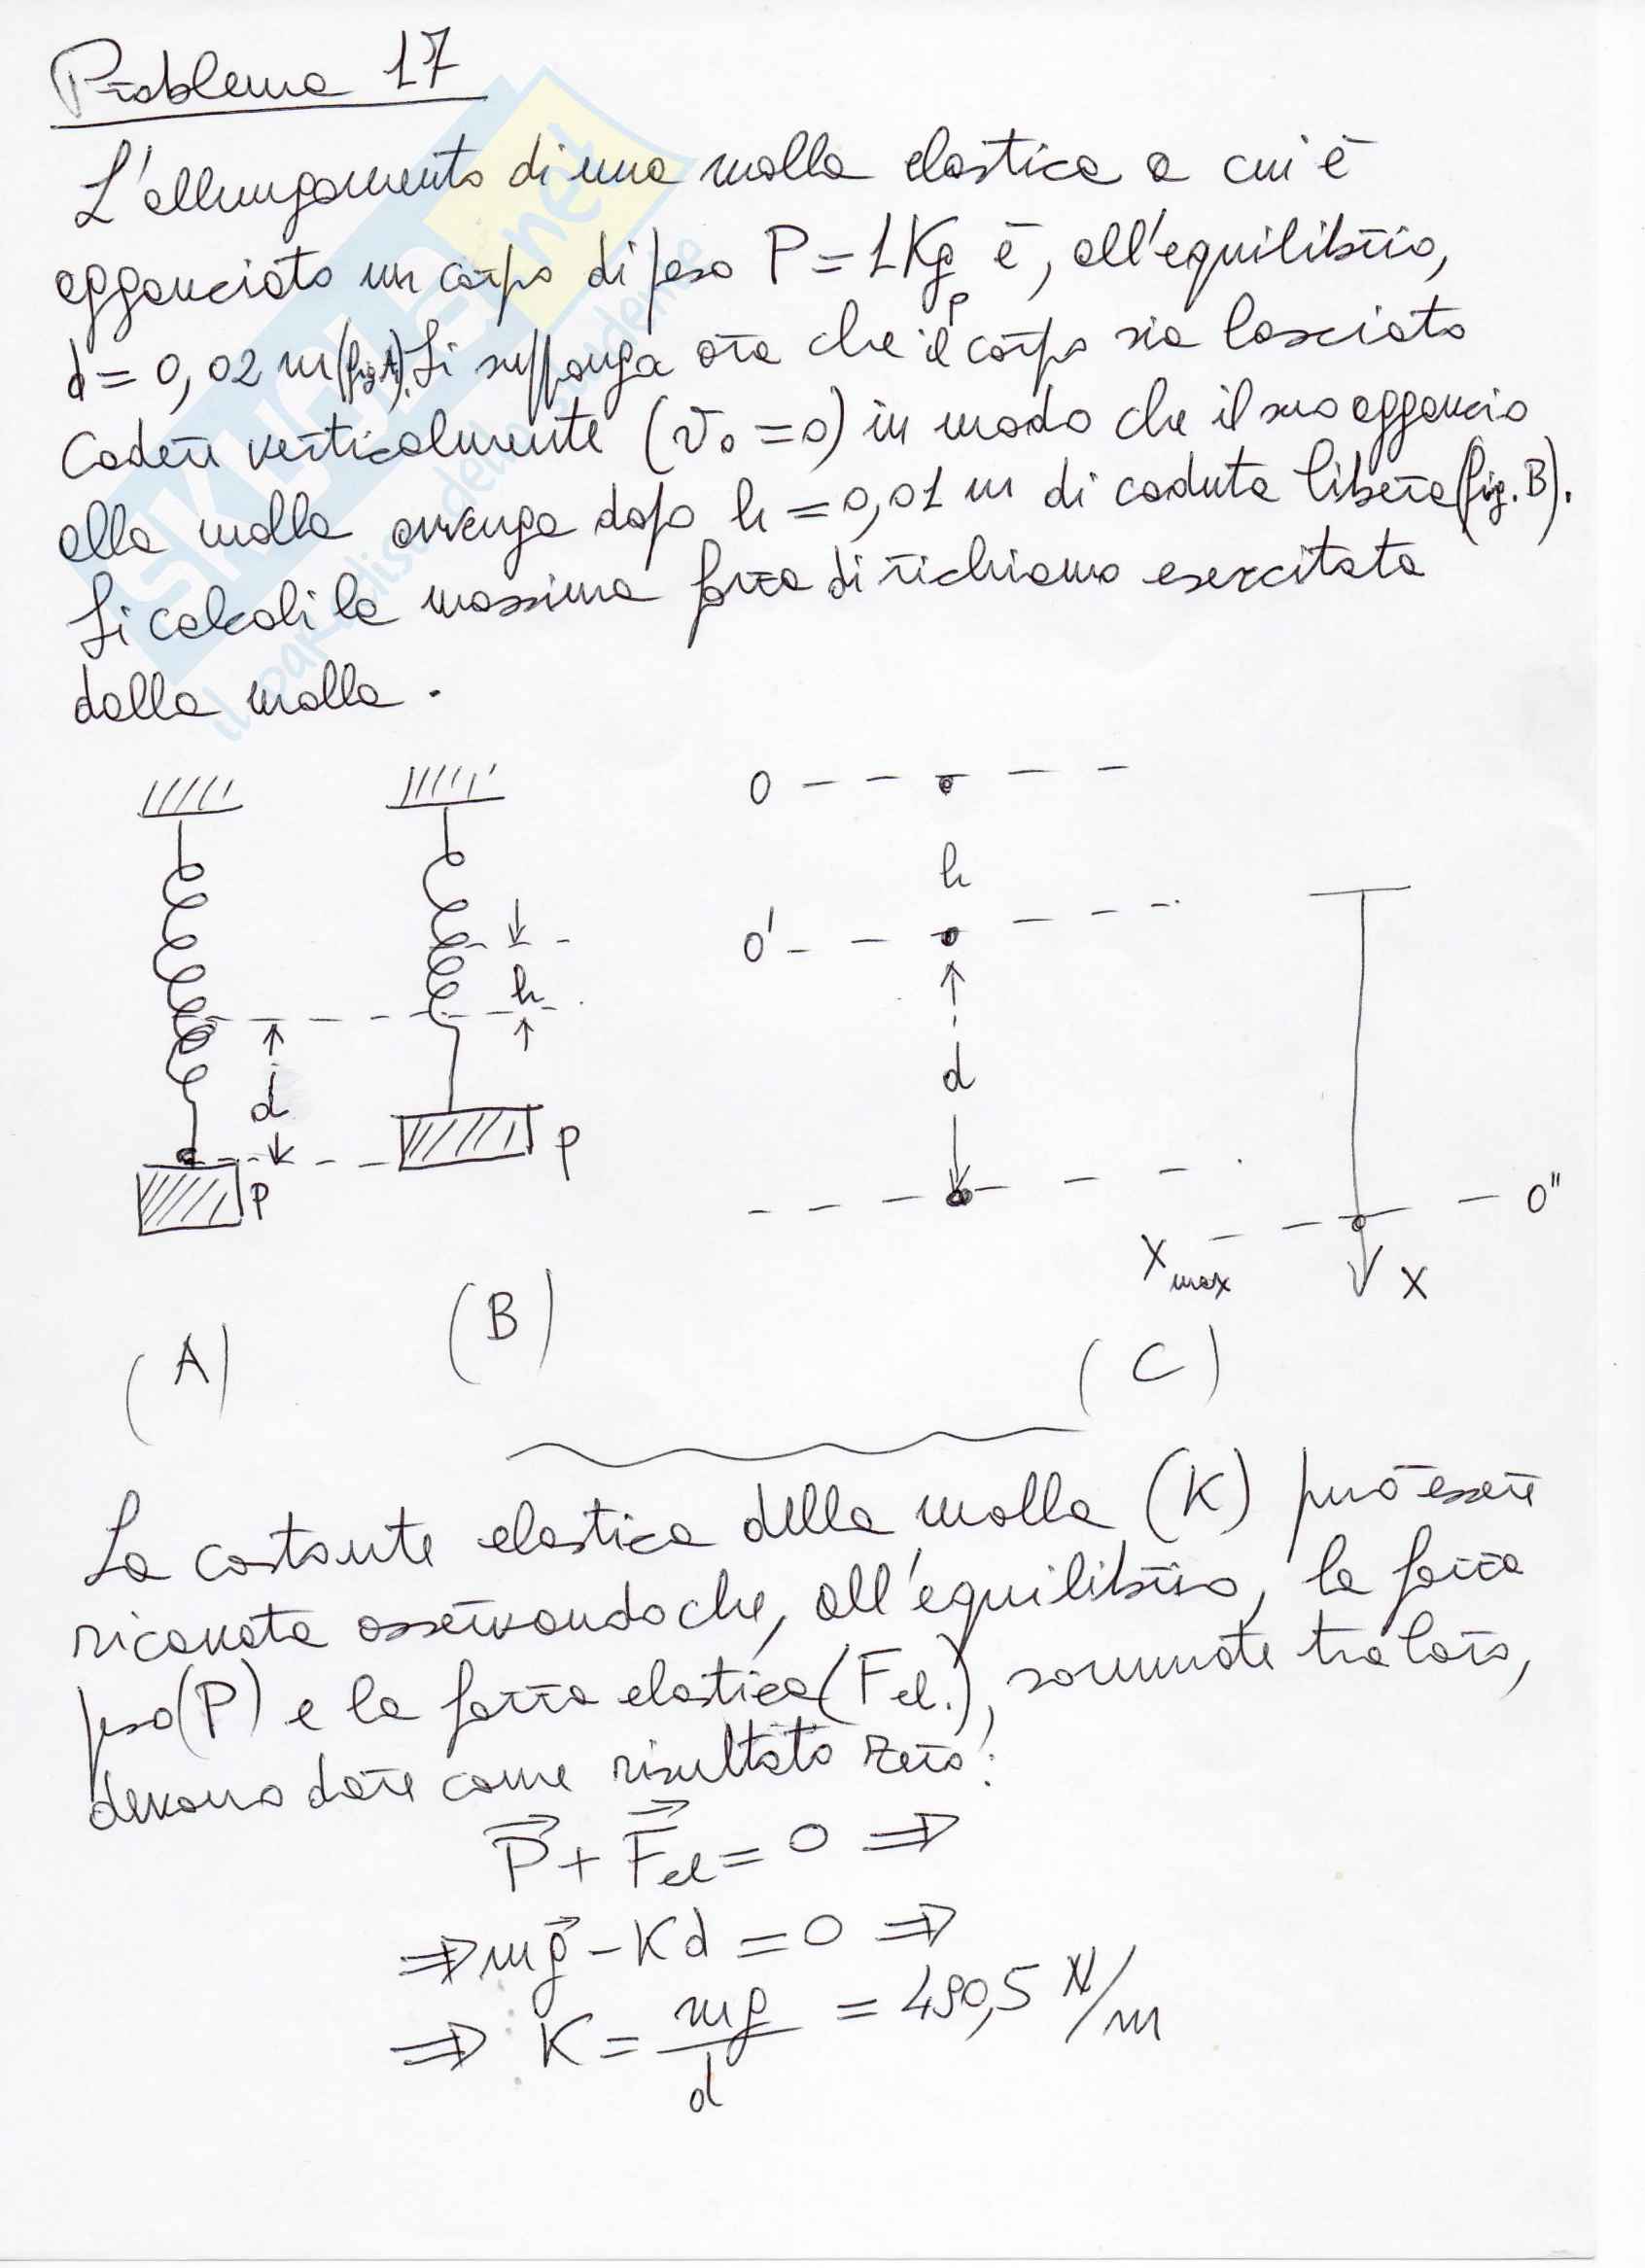 Problema 17
L'allungamento di una molla elastica a cui è
agganciato un corpo di peso P = 1 Kgp è, all'equilibrio,
d = 0,02 m (fig. A). Si supponga ora che il corpo sia lasciato
cadere verticalmente (v₀ = 0) in modo che il suo aggancio
alla molla avvenga dopo h = 0,01 m di caduta libera (fig. B).
Si calcoli la massima forza di richiamo esercitata
dalla molla.
O
h
O'
h
d
d
P
P
O"
Xmax
X
(A)
(B)
(C)
La costante elastica della molla (K) può essere
ricavata osservando che, all'equilibrio, la forza
peso (P) e la forza elastica (Fel.), sommate tra loro,
devono dare come risultato zero:
P⃗ + F⃗el = 0 ⇒
⇒ mg⃗ - Kd = 0 ⇒
⇒ K = mg/d = 490,5 N/m
SKUOLA.net
il paradiso dello studente